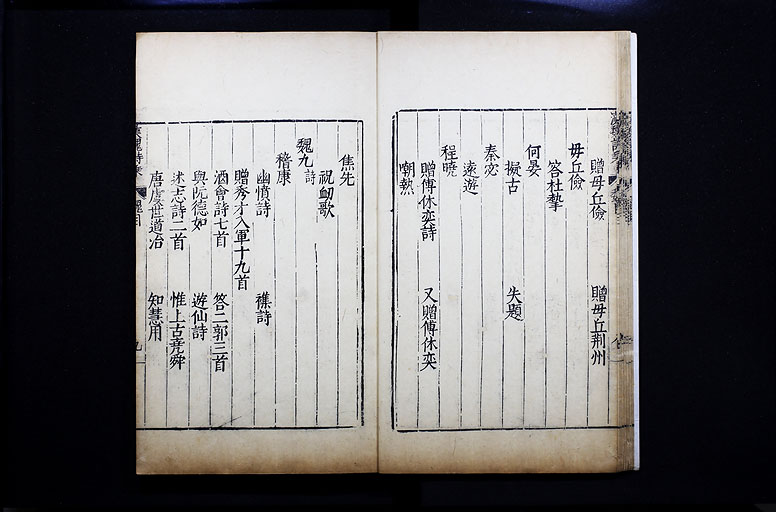 贈毋丘儉 贈毋丘荊州
毋丘儉
答杜摯
何晏
擬古 失題
秦宓
遠遊
程曉
贈傅休奕詩 又贈傅休奕
嘲熱
焦先
祝衂歌
魏九 詩
嵇康
幽憤詩 襍詩
贈秀才入軍十九首
酒會詩七首 答二郭三首
與阮德如 遊仙詩
述志詩二首 惟上古堯舜
唐虞世道治 知慧用
漢魏詩乘 魏目 九